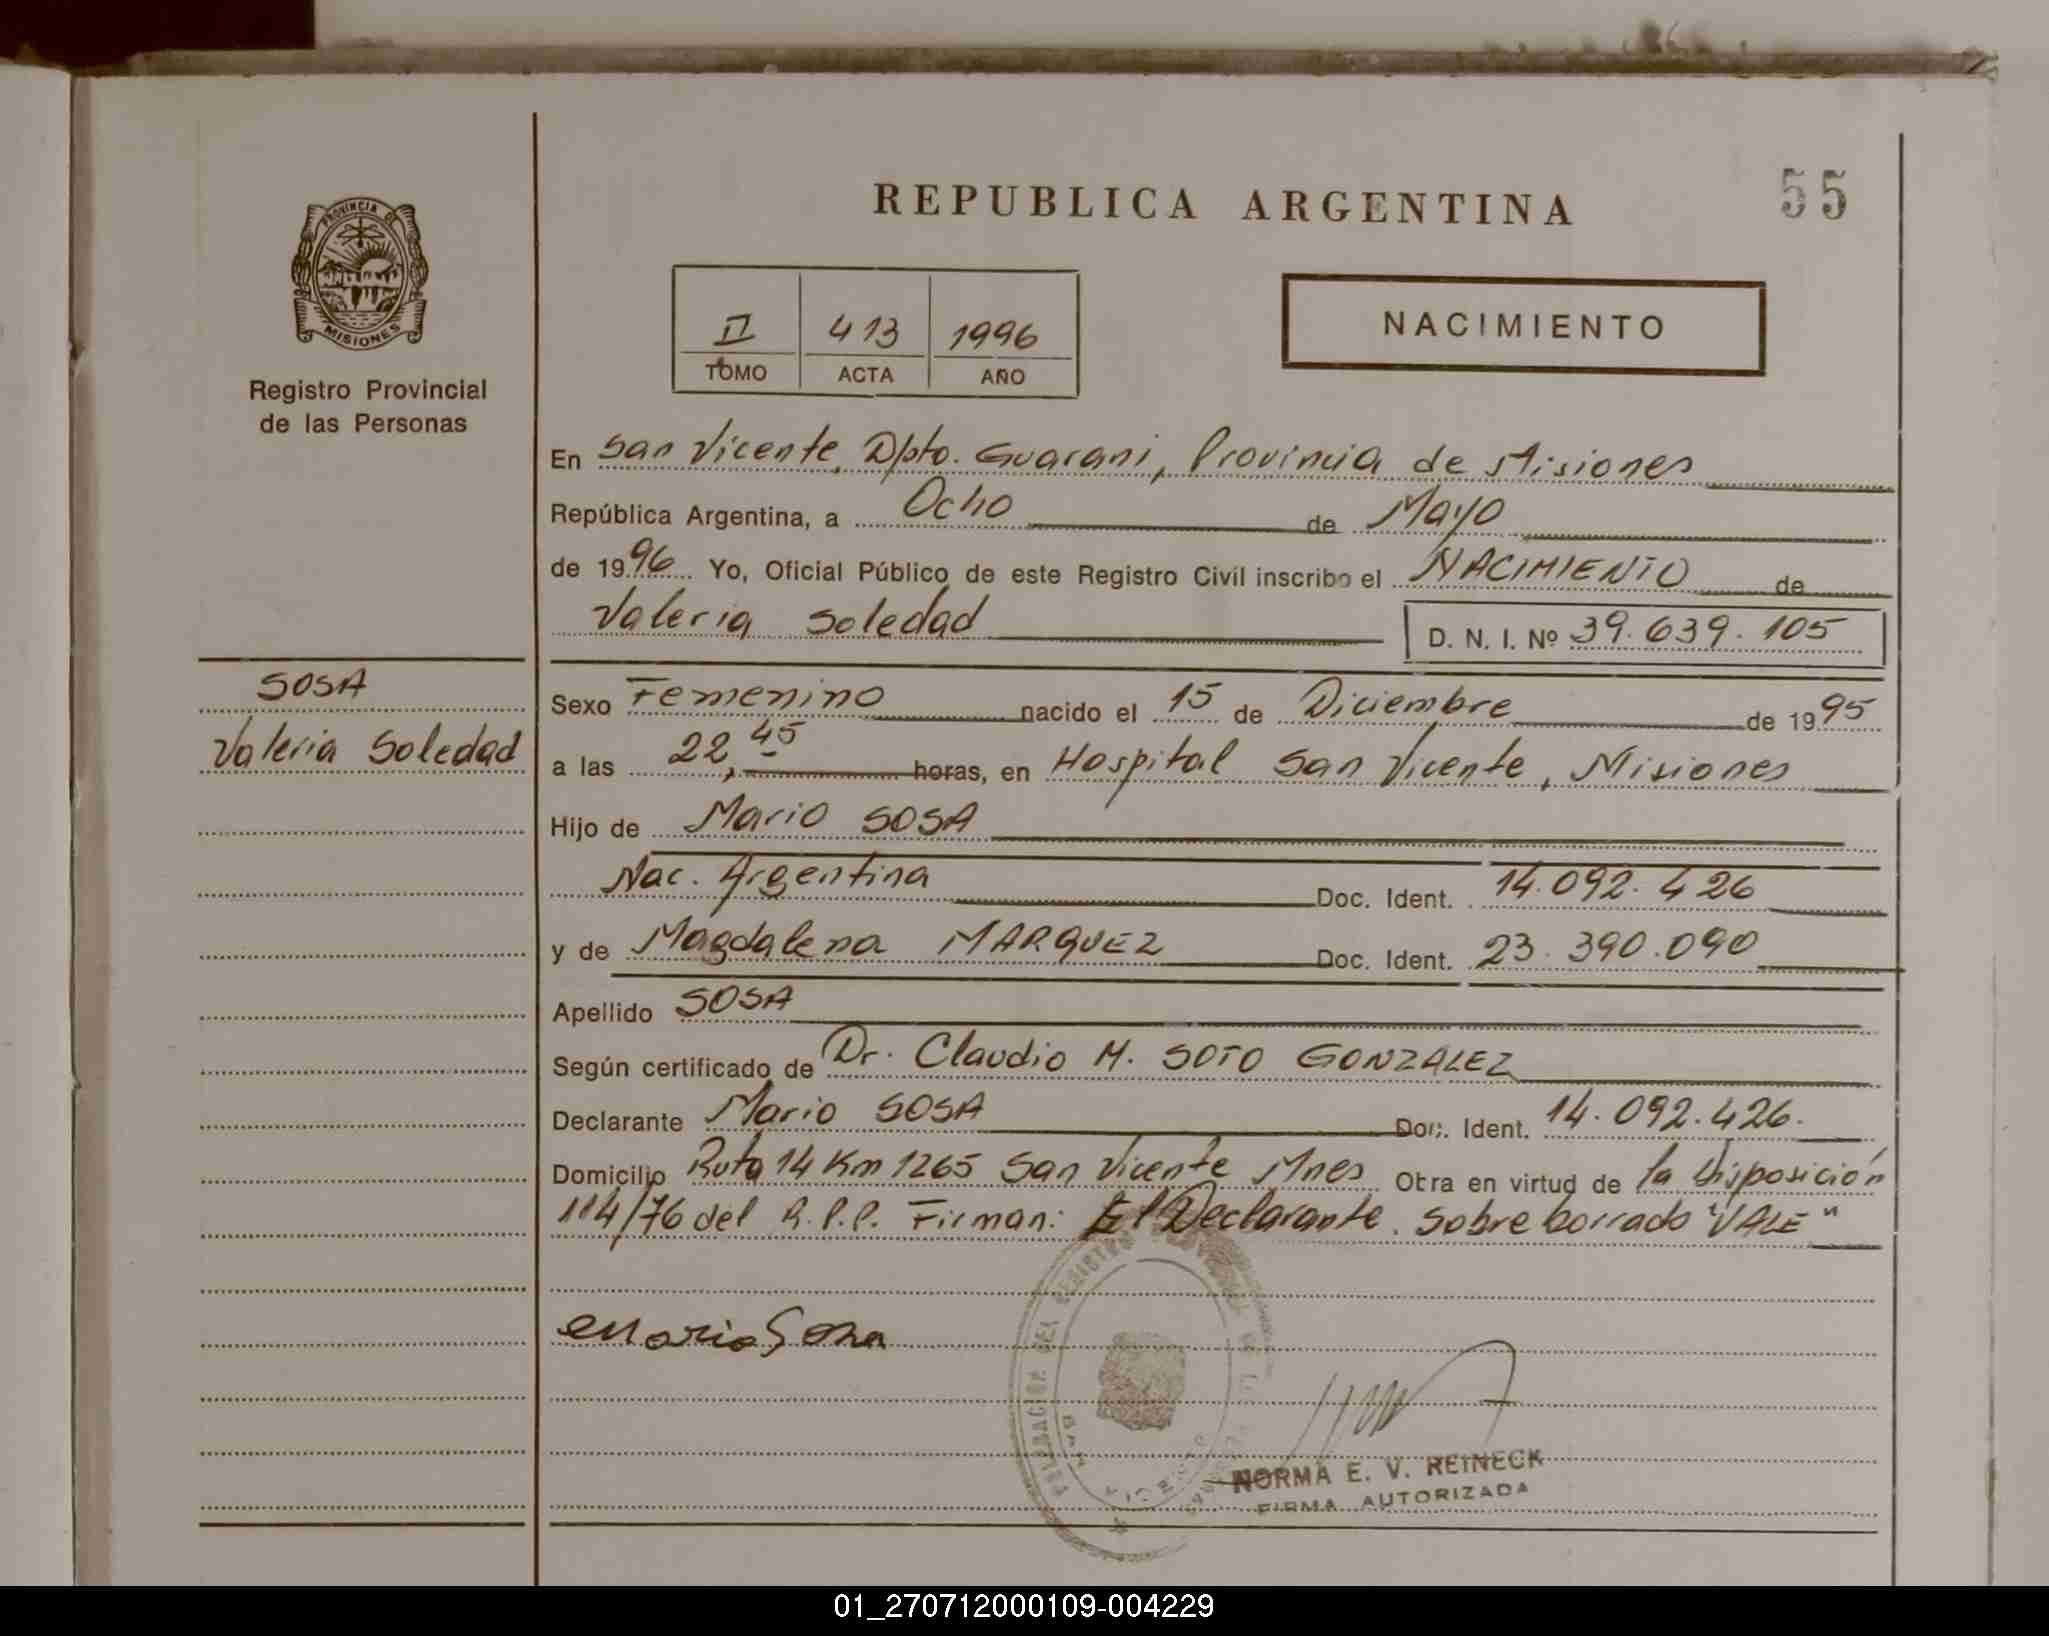 55
REPUBLICA ARGENTINA
PROVINCIA DE
MISIONES
Registro Provincial
de las Personas
II 413 1996
TOMO ACTA AÑO
NACIMIENTO
En San Vicente, Dpto. Guarani, Provincia de Misiones
República Argentina, a Ocho de Mayo
de 1996 Yo, Oficial Público de este Registro Civil inscribo el NACIMIENTO de
Valeria Soledad D. N. I. Nº 39.639.105
SOSA
Valeria Soledad
Sexo Femenino nacido el 15 de Diciembre de 1995
a las 22,45 horas, en Hospital San Vicente, Misiones
Hijo de Mario SOSA
Nac. Argentina Doc. Ident. 14.092.426
y de Magdalena MARQUEZ Doc. Ident. 23.390.090
Apellido SOSA
Según certificado de Dr. Claudio M. SOTO GONZALEZ
Declarante Mario SOSA Doc. Ident. 14.092.426.
Domicilio Ruta 14 Km 1265 San Vicente Mnes Otra en virtud de la Disposición
114/76 del R.P.P. Firman: El Declarante. Sobre borrado "VALE"
Mario Sosa
NORMA E. V. REINECK
FIRMA AUTORIZADA
01_270712000109-004229